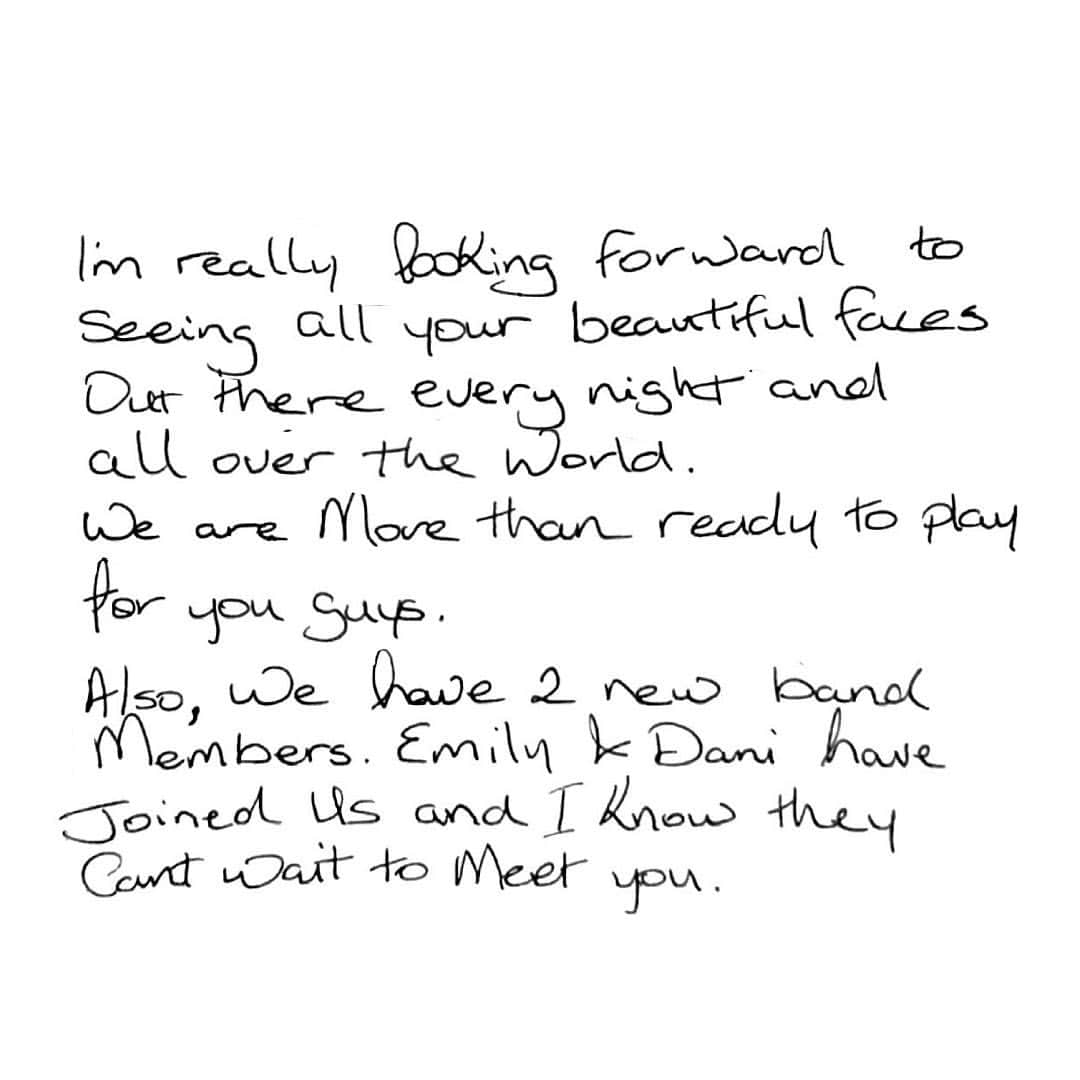 I'm really looking forward to
Seeing all your beautiful faces
Out there every night and
all over the World.
We are More than ready to play
for you guys.
Also, We have 2 new band
Members. Emily & Dani have
Joined Us and I Know they
Can't Wait to Meet you.